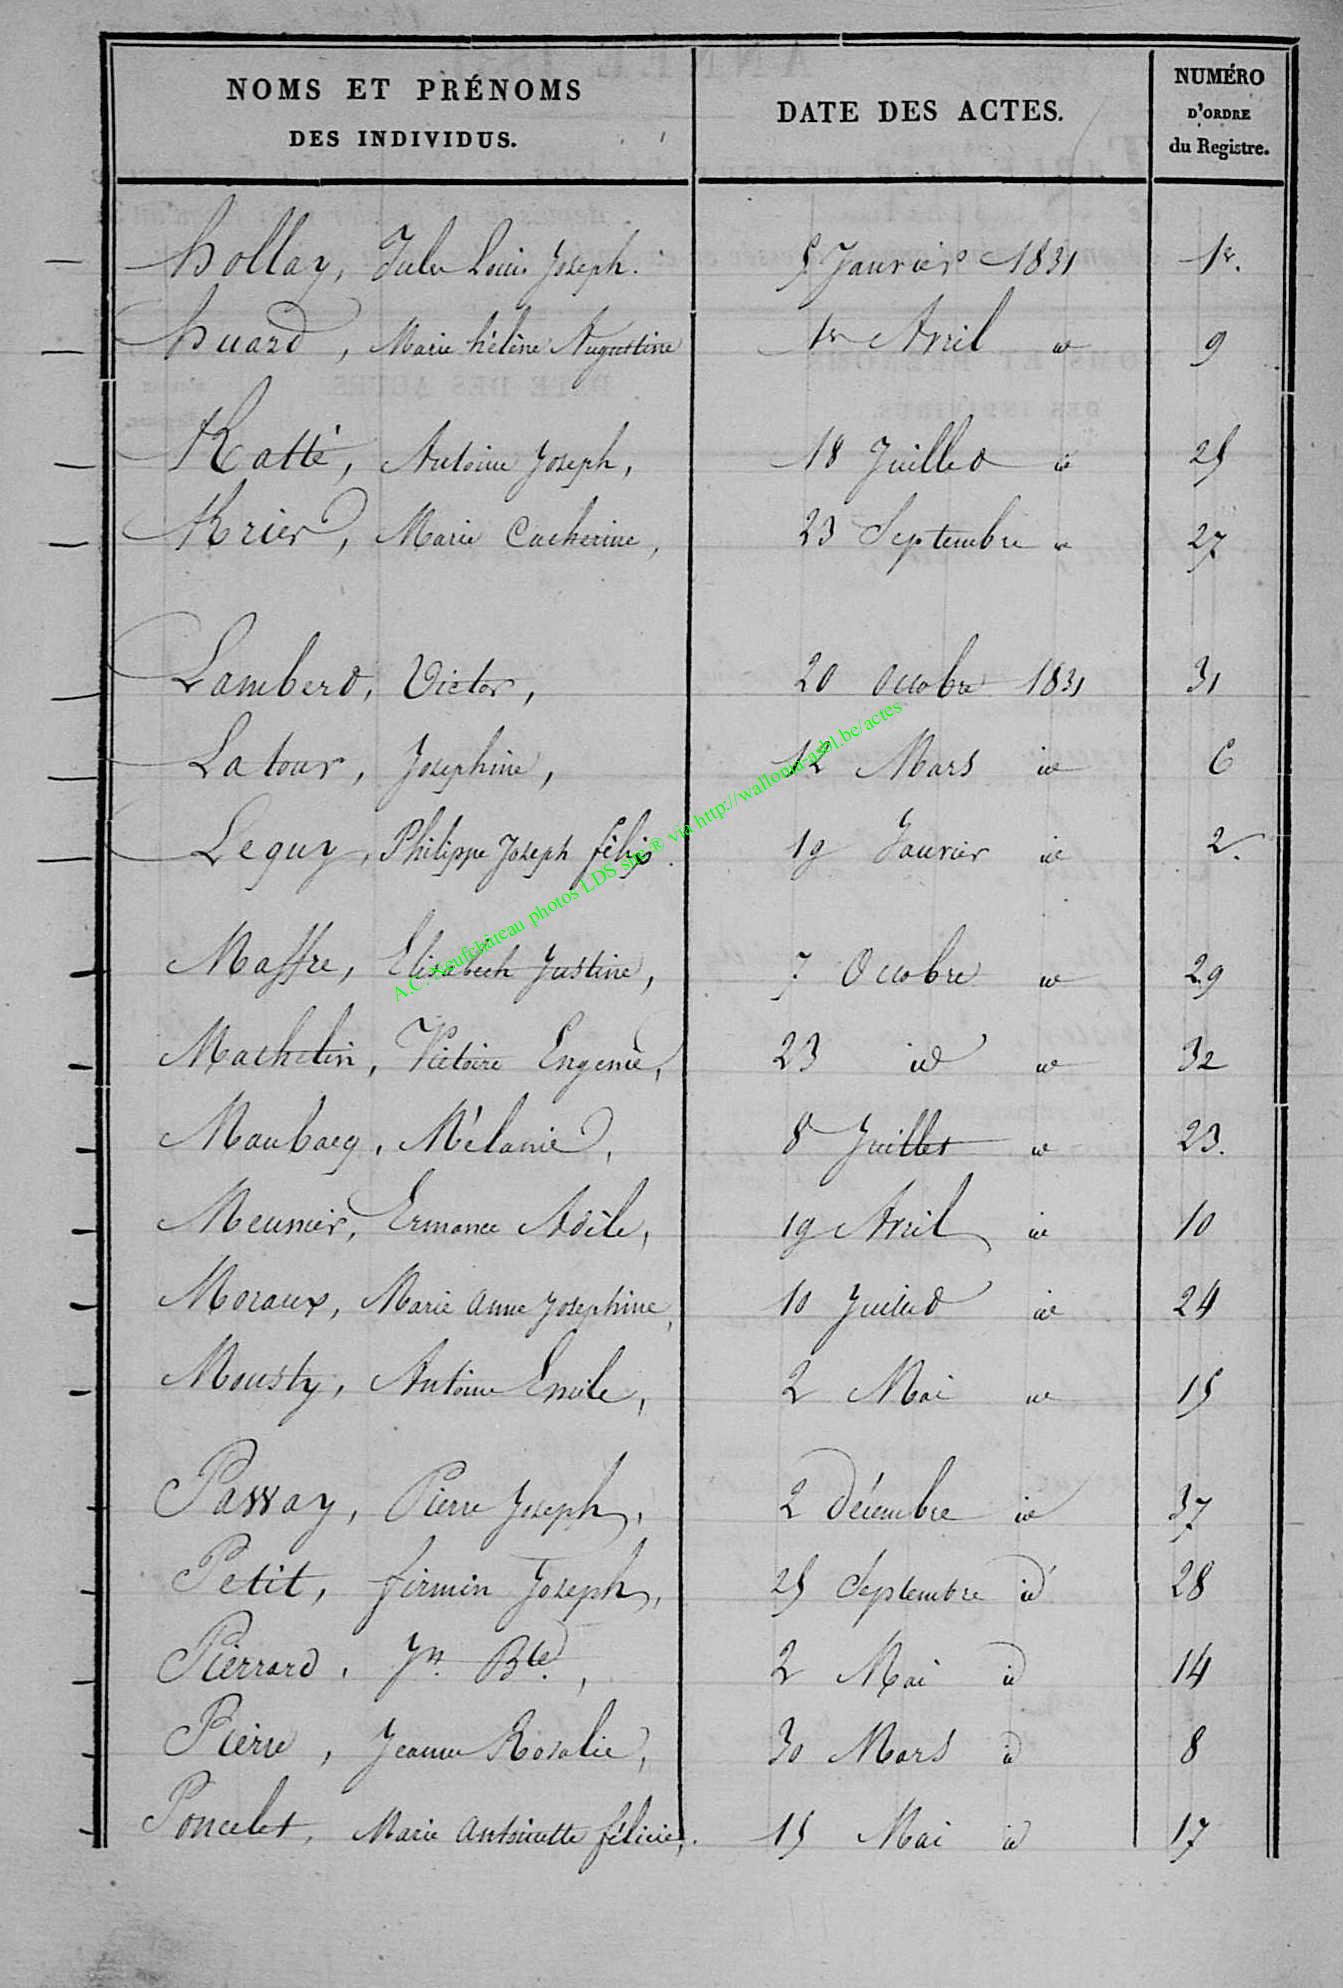 NOMS ET PRÉNOMS
DES INDIVIDUS.
DATE DES ACTES.
NUMÉRO
D'ORDRE
du Registre.
hollay, Jules Louis Joseph. 5 Janvier 1831 1er.
huard, Marie hélène Augustine 1er Avril id 9
Katté, Antoine Joseph, 18 Juillet id 25
Krier, Marie Catherine, 23 Septembre id 27
Lambert, Victor, 20 Octobre 1831 31
Latour, Josephine, 12 Mars id 6
Lequy, Philippe Joseph félix. 19 Janvier id 2.
Maffre, Elisabeth Justine, 7 Octobre id 29
Machelin, Victoire Eugenie, 23 id id 32
Maubacq, Mélanie, 8 Juillet id 23.
Meunier, Ermance Adèle, 19 Avril id 10
Moraux, Marie Anne Josephine, 10 Juillet id 24
Mousty, Antoine Emile, 2 Mai id 15
Passay, Pierre Joseph, 2 Décembre id 37
Petit, firmin Joseph, 25 Septembre id 28
Pierrard, Jn. Bte., 2 Mai id 14
Pierre, Jeanne Rosalie, 30 Mars id 8
Poncelet, Marie Antoinette félicie,. 15 Mai id 17
A.C. Neufchâteau photos LDS site® via http://wallonia-asbl.be/actes